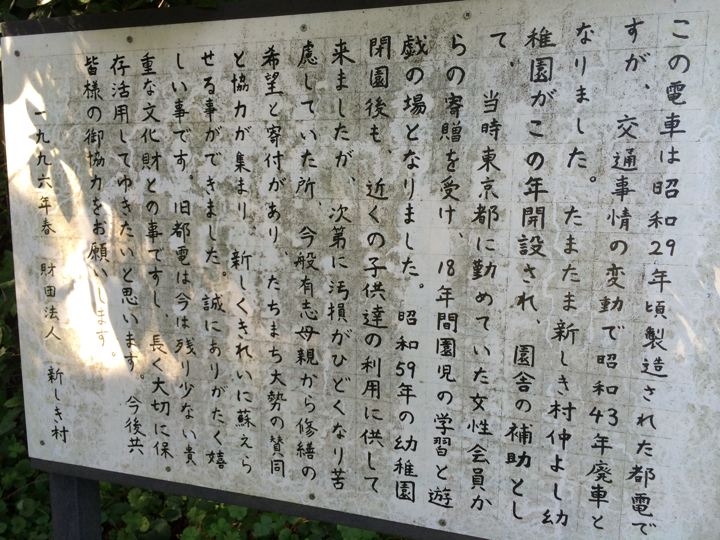 この電車は昭和29年頃製造された都電で
すが、交通事情の変動で昭和43年廃車と
なりました。たまたま新しき村仲よし幼
稚園がこの年開設され、園舎の補助とし
て、当時東京都に勤めていた女性会員か
らの寄贈を受け、18年間園児の学習と遊
戯の場となりました。昭和59年の幼稚園
閉園後も、近くの子供達の利用に供して
来ましたが、次第に汚損がひどくなり苦
慮していた所、今般有志母親から修繕の
希望と寄付があり、たちまち大勢の賛同
と協力が集まり、新しくきれいに蘇えら
せる事ができました。誠にありがたく嬉
しい事です。旧都電は今は残り少ない貴
重な文化財との事ですし、長く大切に保
存活用してゆきたいと思います。今後共
皆様の御協力をお願いします。
一九九六年春 財団法人 新しき村